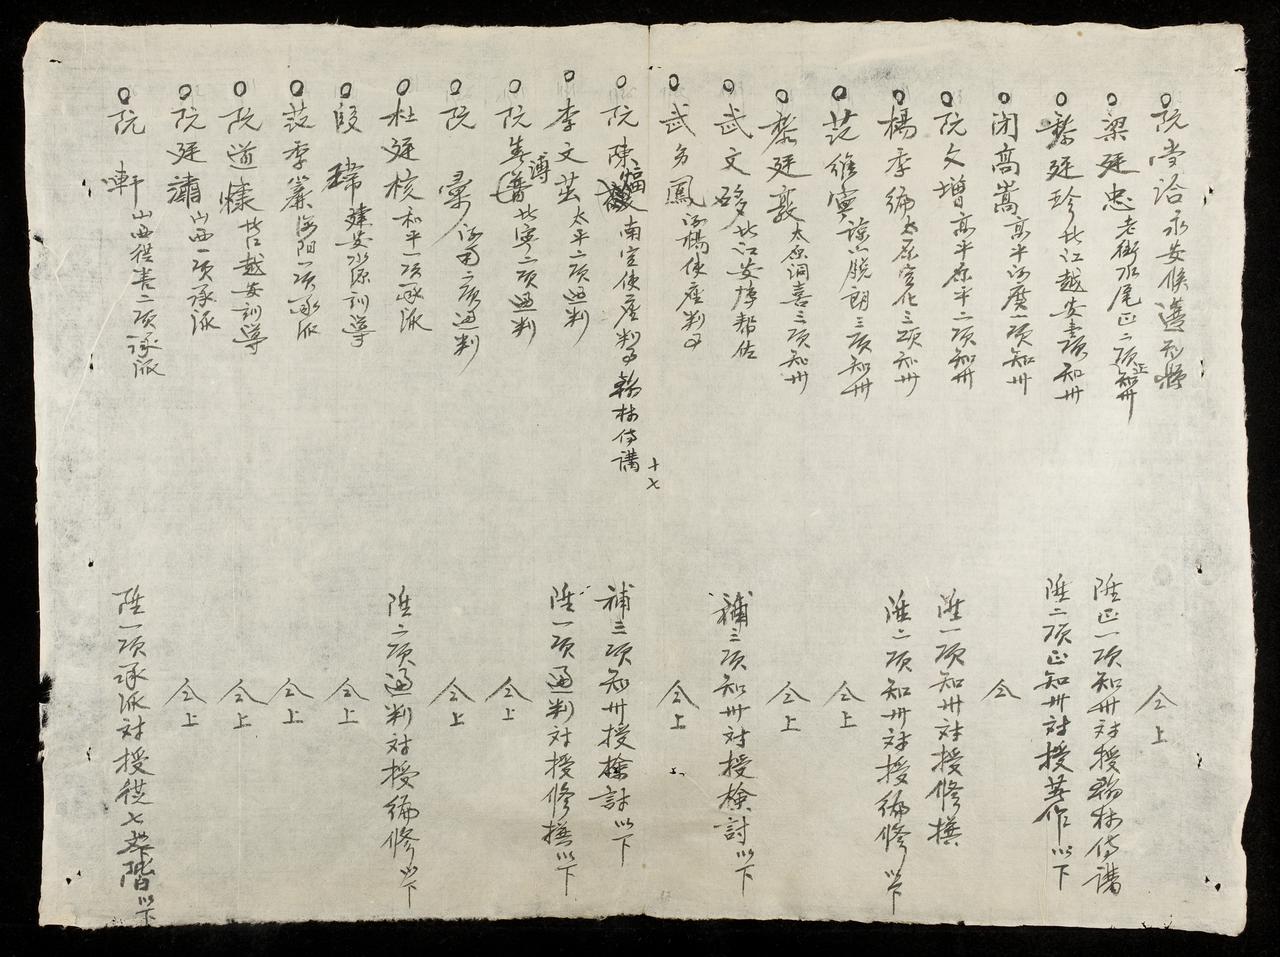 阮 洽永安候選知縣 仝上
梁廷忠老街水尾正二項知州 陞正一項知州对授翰林侍講
黎廷珍北江越安壹項知州 陞二項正知州对授著作以下
閉髙嵩髙平河廣一項知州 仝
阮文增髙平原平二項知州 陞一項知州对授修撰
楊季編太原宣化三項知州 陞二項知州对授編修以下
范維寅諒山脫朗三項知州 仝上
黎廷敦太原洞喜三項知州 仝上
武文 北江安博幇佐 補三項知州对授檢討以下
武多鳳河楊使座判事 仝上
阮陳煏南定使座判事翰林侍講 補三項知州授檢討以下
十七
李文茁太平二項通判 陞一項通判对授修撰以下
阮春溥北寧二項通判 仝上
阮彙河南二項通判 仝上
杜廷核和平一項承派 陞二項通判对授編修以下
段瑞建安水源訓導 仝上
范季 海陽一項承派 仝上
阮道慊北江越安訓導 仝上
阮廷潚山西一項承派 仝上
阮軒山西從善二項承派 陞一項承派对授從七品階以下